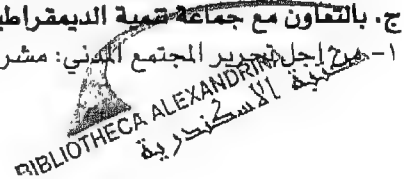 ج. بالتعاون مع جماعة تنمية الديمقراط
١- من إجل تحرير المجتمع المدني: مشر
BIBLIOTHECA ALEXANDRINA
مكتبة الاسكندرية